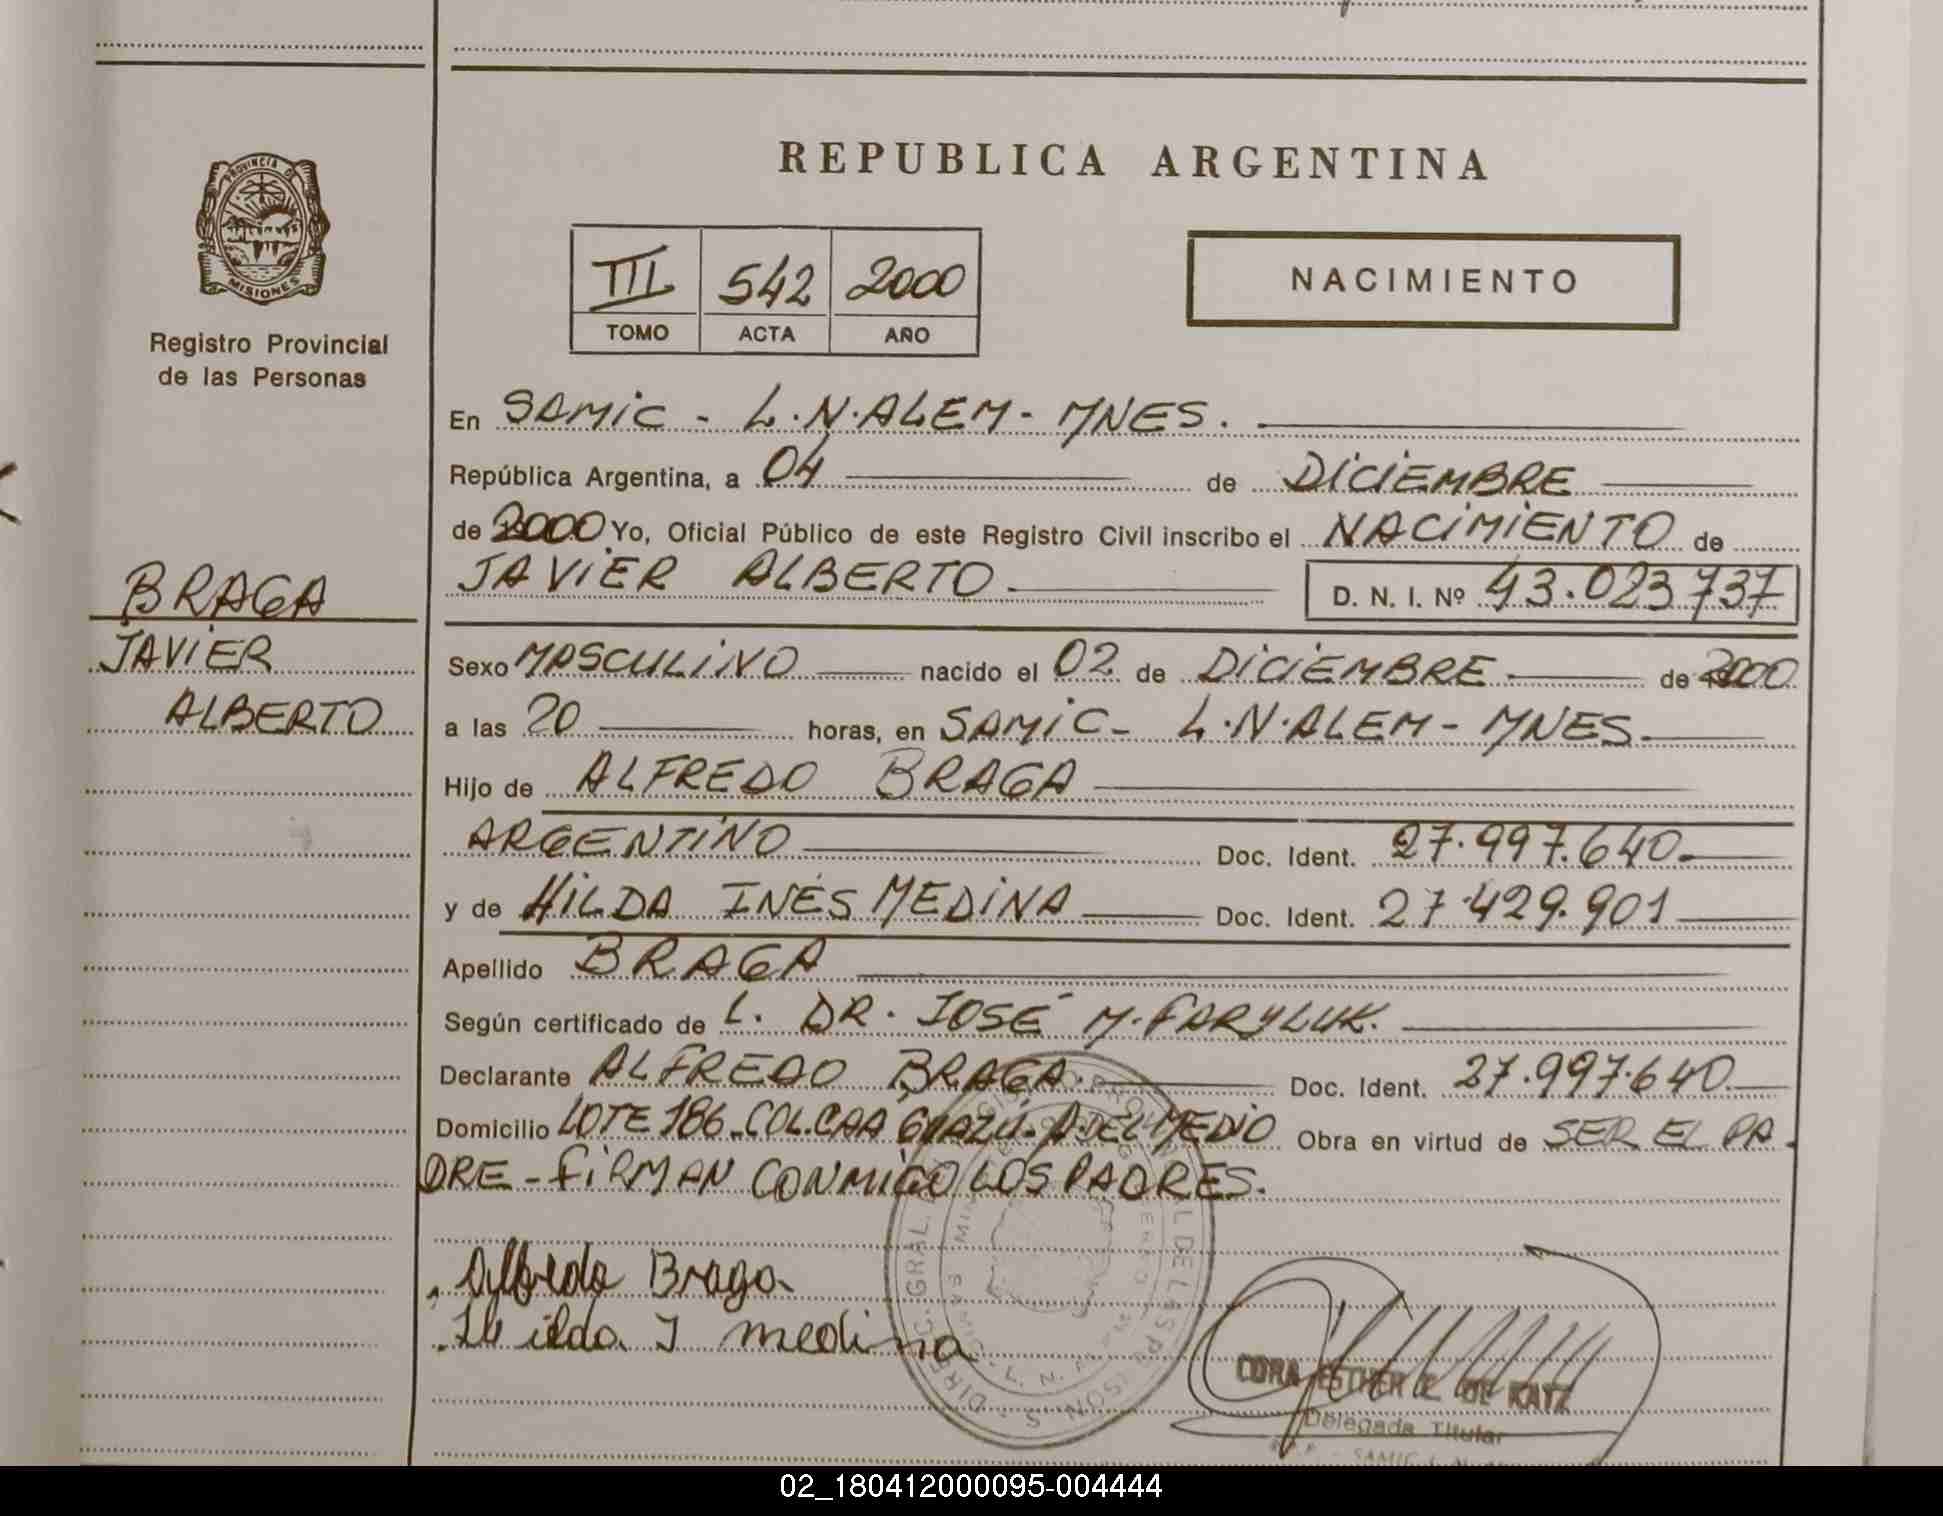 REPUBLICA ARGENTINA
PROVINCIA DE
MISIONES
Registro Provincial
de las Personas
III 542 2000
TOMO ACTA AÑO
NACIMIENTO
BRAGA
JAVIER
ALBERTO
En SAMIC - L.N.ALEM - MNES.
República Argentina, a 04 de DICIEMBRE
de 2000 Yo, Oficial Público de este Registro Civil inscribo el NACIMIENTO de
JAVIER ALBERTO D. N. I. Nº 43.023737
Sexo MASCULINO nacido el 02 de DICIEMBRE de 2000
a las 20 horas, en SAMIC - L.N.ALEM - MNES.
Hijo de ALFREDO BRAGA
ARGENTINO Doc. Ident. 27.997.640.
y de HILDA INÉS MEDINA Doc. Ident. 27.429.901
Apellido BRAGA
Según certificado de L. DR. JOSÉ M. FARYLUK.
Declarante ALFREDO BRAGA. Doc. Ident. 27.997.640
Domicilio LOTE 186_COL.CAA GUAZÚ-A.DEL MEDIO Obra en virtud de SER EL PA
DRE - FIRMAN CONMIGO LOS PADRES.
Alfredo Braga
Hilda I medina
CORA ESTHER L. DE KATZ
Delegada Titular
02_180412000095-004444